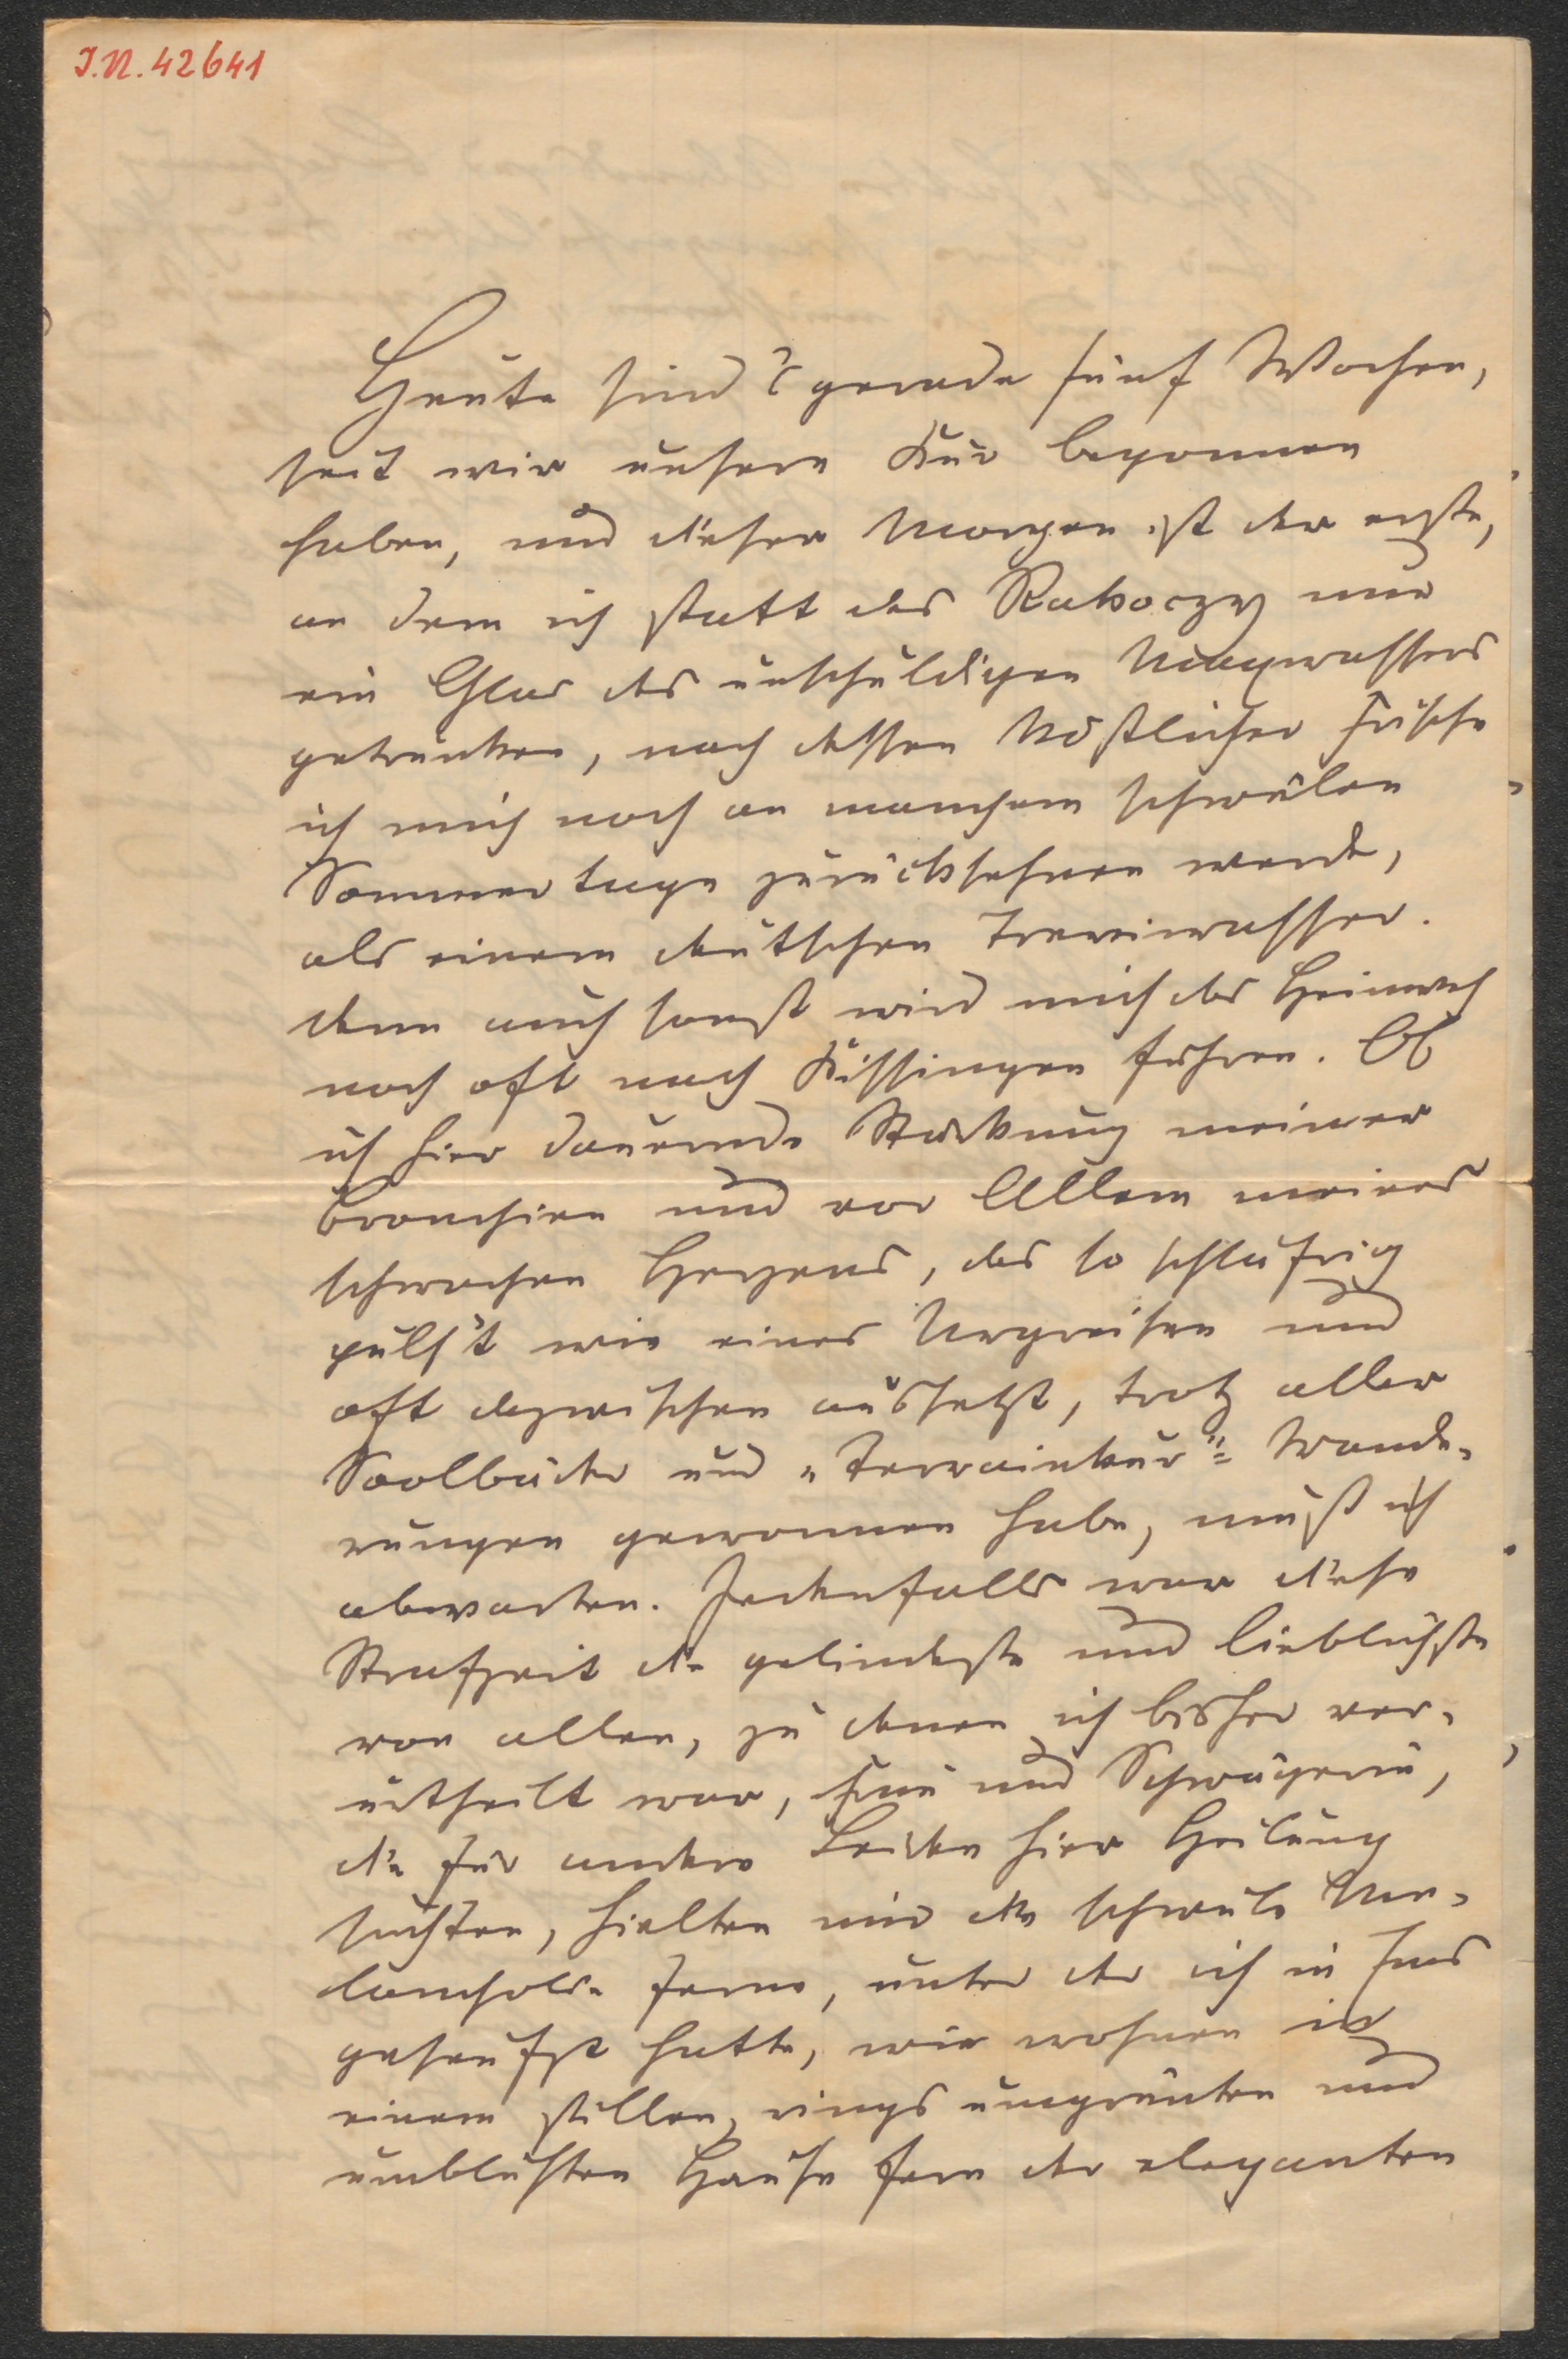 I.N. 42641
Heute sind's gerade fünf Wochen,
seit wir unsere Kur begonnen
haben, und dieser Morgen ist der erste,
an dem ich statt des Rakoczy nur
ein Glas des unschuldigen Maxwassers
getrunken, nach dessen köstlicher Frische
ich mich noch an manchem schwülen
Sommertage zurücksehnen werde,
als einem deutschen Treviwasser.
Denn auch sonst wird mich das Heimweh
noch oft nach Kissingen führen. Ob
ich hier dauernde Stärkung meiner
Bronchien und vor Allem meines
schwachen Herzens, das so schläfrig
puls't wie eines Urgreisen und
oft dazwischen aussetzt, trotz aller
Soolbäder und „Terrainkur"= Wande-
rungen gewonnen habe, muß ich
abwarten. Jedenfalls war diese
Strafzeit die gelindeste und lieblichste
von allen, zu denen ich bisher ver-
urtheilt war, Frau und Schwägerin,
die für andere Leiden hier Heilung
suchten, hielten mir die schwüle Me-
lancholie fern, unter der ich in Ems
geseufzt hatte, wir wohnen in
einem stillen, rings umgrünten und
umblühten Hause fern der eleganten